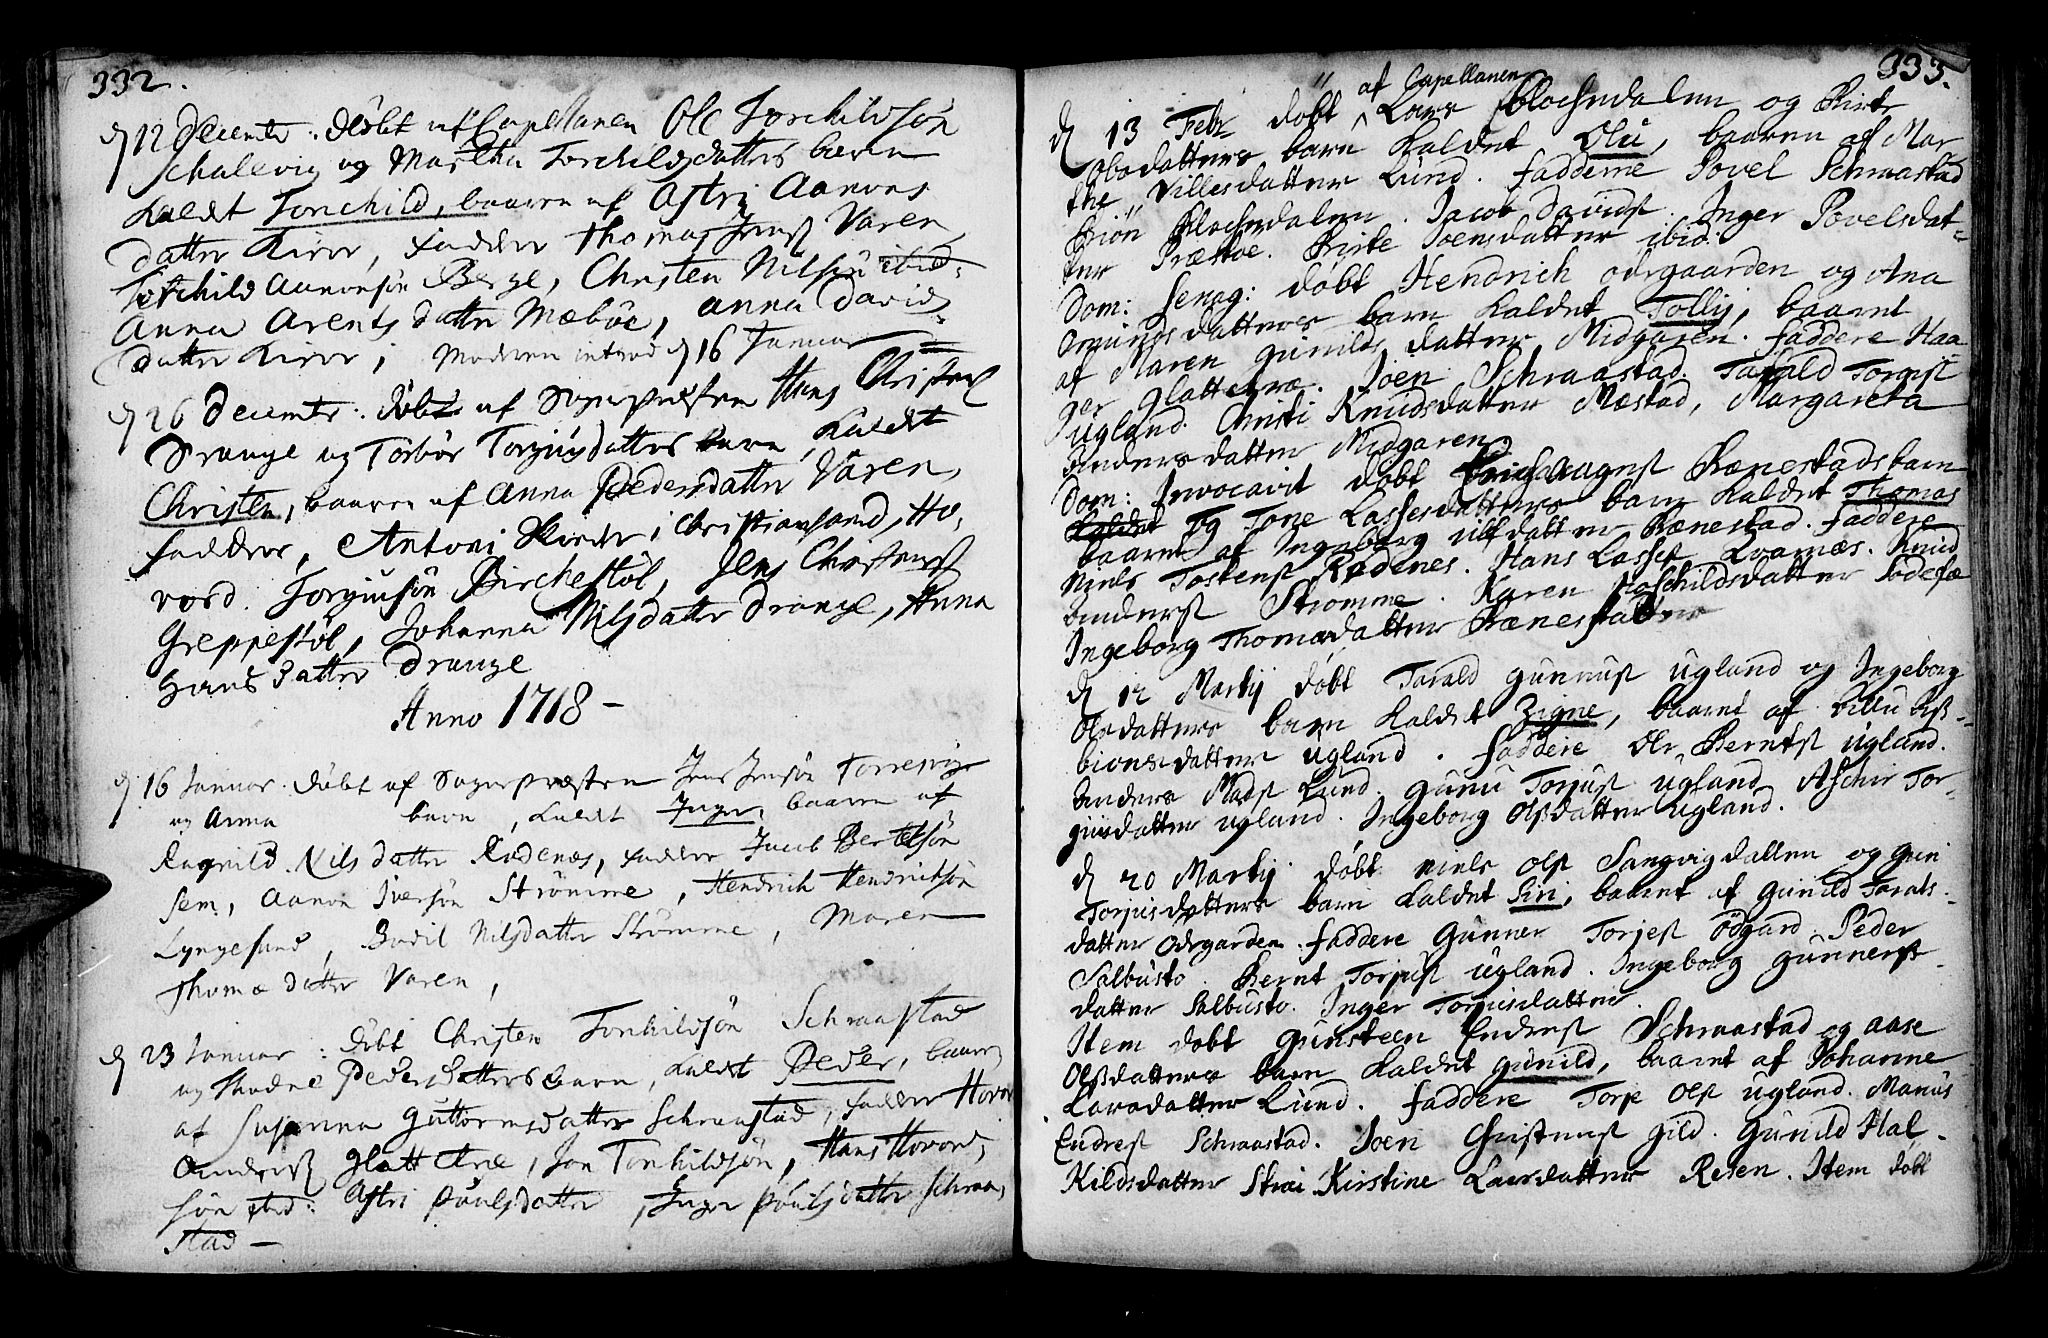 332.
d 12 Decembr. Döbt af Capellanen Ole Torchildsön
Schallevig og Martha Torchildsdatters barn
Kaldt Torchild, baaren af Astri Aanons
datter Kiær, faddere Thomas Jenss Varen,
Torchild Aanonsön Berge, Christen Nilsön ibid:
Anna Arentsdatter Mæböe, Anna Davids
datter Kiær; Moderen introd d 16 Januar
d 26 Decembr: döbt af Sogneprestem Hans Christens
Drange og Torbör Torgiusdatters barn, kaldt
Christen, baaren af Anna Pedersdatter Varen,
faddere, Antoni i Christiansand, Ho,
vord. Torgiusön Birchestöl, Jens Christenss
Greppestöl, Johanna Nilsdatter Drange, Anna
Hansdatter Drange
Anno 1718 -
d 16 Januar. döbt af Sognepræsten Jens Jensön
og Anna barn, kaldt Inger, baaren af
Ragnild Nilsdatter Rødenæs, faddere Jacob Bertelsön
Sem, Aanon Iversön Strömme, Hendrich Hendrichsön
Lyngesund, Bodil Nilsdatter Strömme, Maren
Thomædatter Varen,
d 23 Januar: döbt Christen Torchildsön Schraastad
og Pedersdatters barn, kaldt Peder, baaren
af Susanna Guttormsdatter Schraastad, faddere Hovor
Anderss Glattetræ, Jon Torchildsön, Hans Hovord,
sön ibid: Astri Poulsdatter, Inger Poulsdatter Schraa,
stad -
333.
af Capellanen
d 13 Febr döbt Lars Blochsdalen og Birte
Olsdatters barn kaldet Olu, baaren af Mar
the Villesdatter Lund. Faddere Povel Schraastad
Biön Blochsdalen. Jacob Davids. Inger Povelsdat-
ter Præstöe. Birte Joensdatter ibid.
Dom: Sexag: döbt Hendrich Odrgaarden og Ana
Omundsdatters barn kaldet Tollij, baaret
af Maren Gunildsdatter Midgaren. Faddere Haa
ger Glattetræ. Joen Schraastad. Tarald Torgiss
Ugland. Christi Knudsdatter Mæstad, Margareta
Andersdatter Midgaren.
Dom: Invocavit döbt Aagess Rænestads barn
Kaldet og Tone Lassesdatters barn kaldet Thomas
baaret af Ingeborg Ulfsdatter Rænestad. Faddere
Niels Tostenss Rødenes. Hans Lasses Kvarnæs. Knud
Anderss Strömme. Karen Roschildsdatter
Ingeborg Thomasdatter Rænestad
d 12 Martij döbt Tarald Gunnuss Ugland og Ingeborg
Olsdatters barn kaldet Zigne, baaret af Lillu Ass-
biönsdatter Ugland. Faddere Ole Berntss Ugland.
Anders Mads Lund. Gunu Torjuss Ugland. Aschir Tor-
giusdatter Ugland. Ingeborg Olssdatter Ugland.
d 20 Martij döbt Niels Olss Sangvigdallen og Guri
Torjusdatters barn kaldet Siri, baaret af Gunild Tarals-
datter Odrgarden. Faddere Gunner Torjess Ödgard. Peder
Salbustö. Bernt Torjuss Ugland. Ingeborg Gunners-
datter Salbusto. Inger Torjusdatter.
Item döbt Gunsteen Endress Schraastad og Aase
Olssdatters barn kaldet Gunild, baaret af Johanne
Larsdatter Lund. Faddere Torje Olss Ugland. Manus
Endress Schraastad. Joen Christenss Gild. Gunild Hal-
kildsdatter Strai. Kirstine Larsdatter Resen. Item döbt